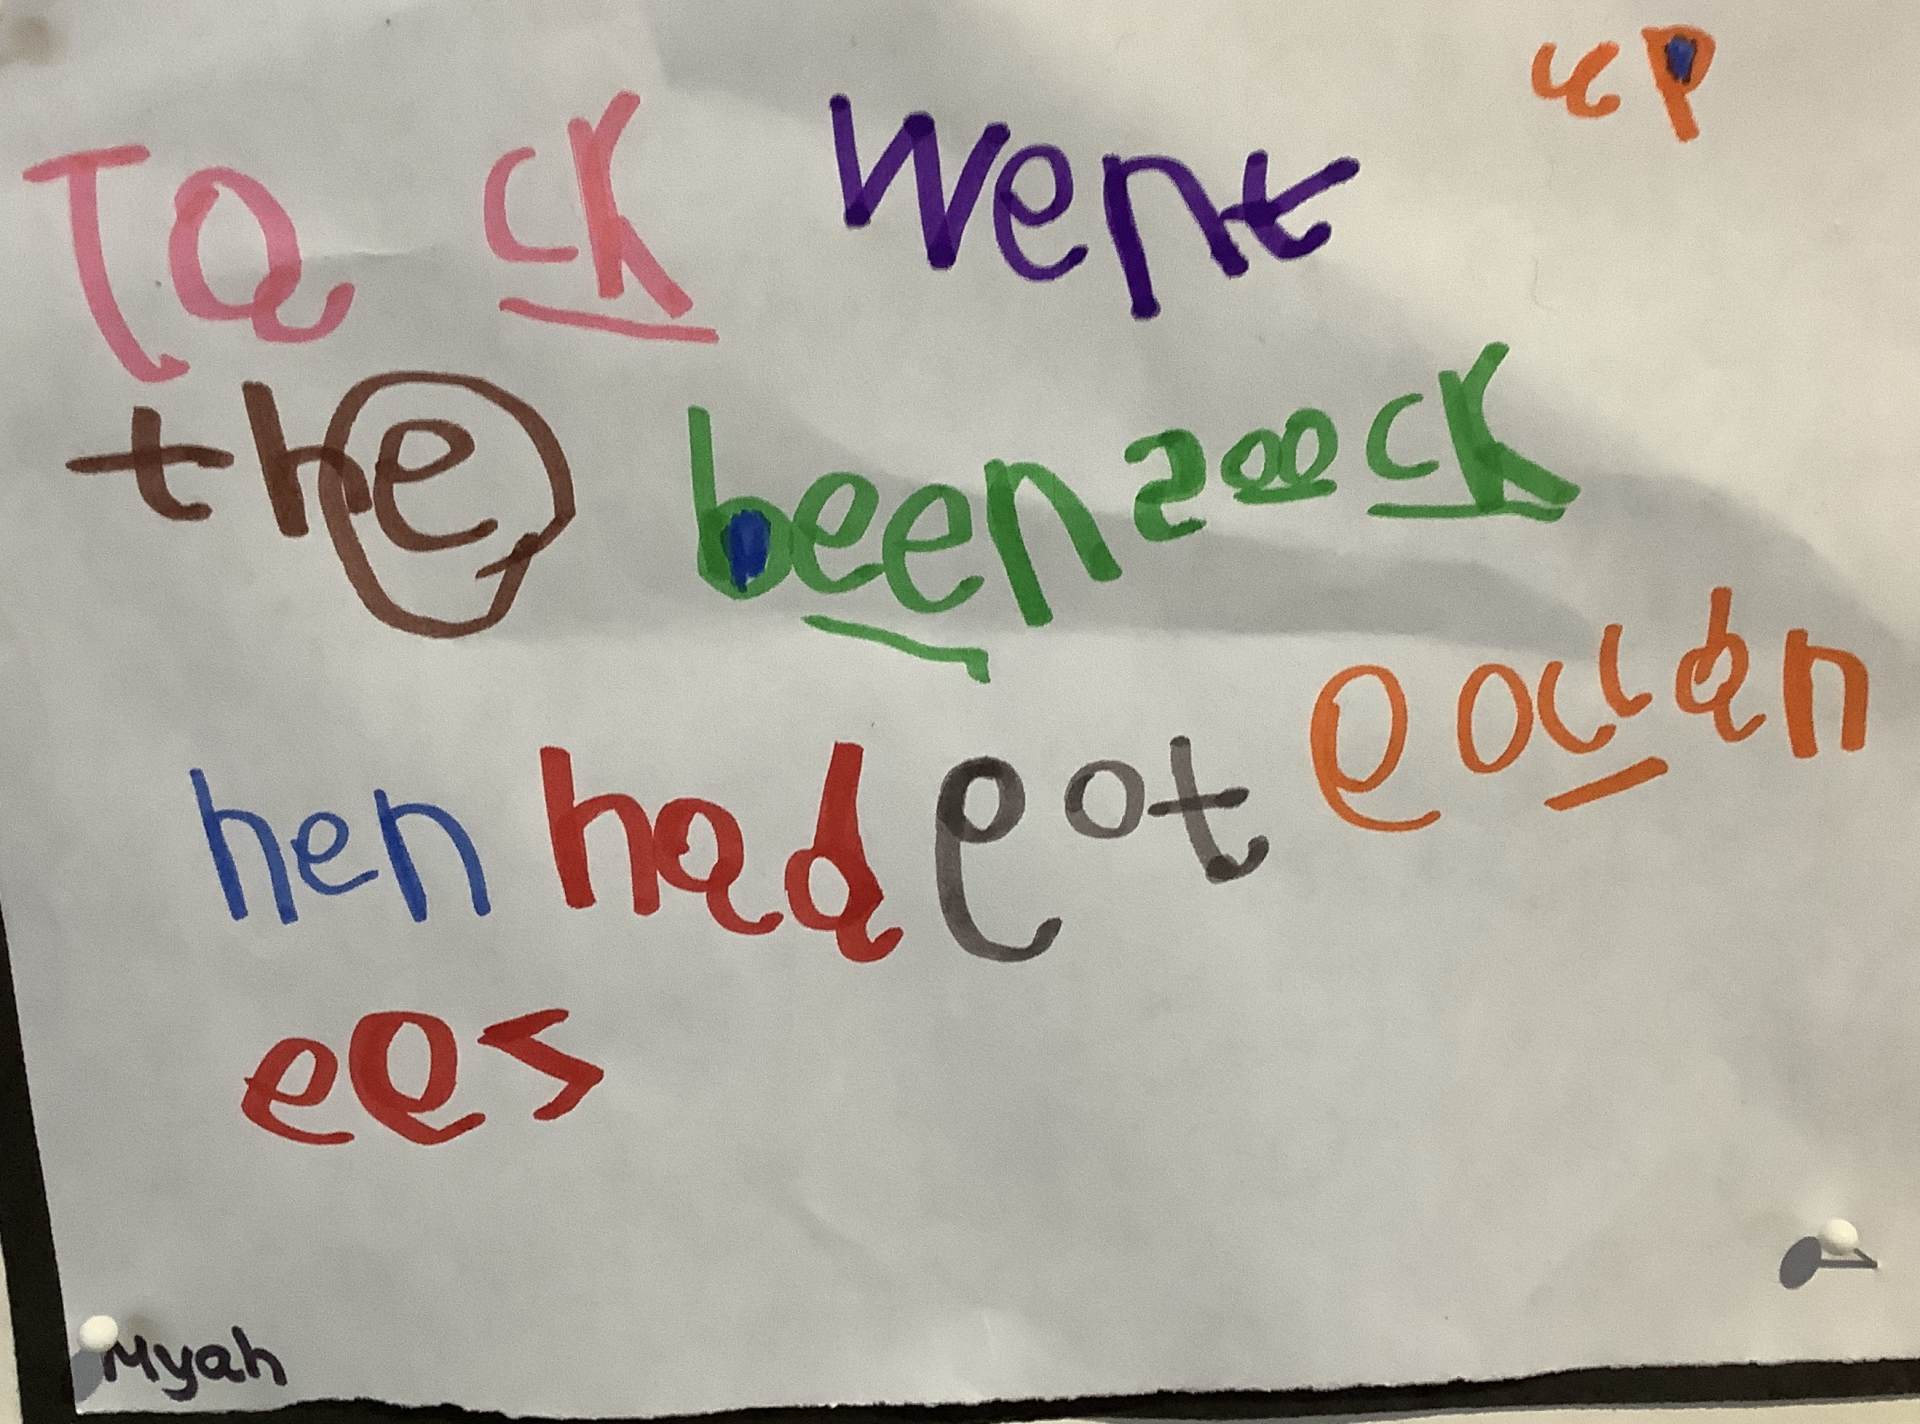 Tack went up
the beenzoock
hen had got goldan
egs
Myah